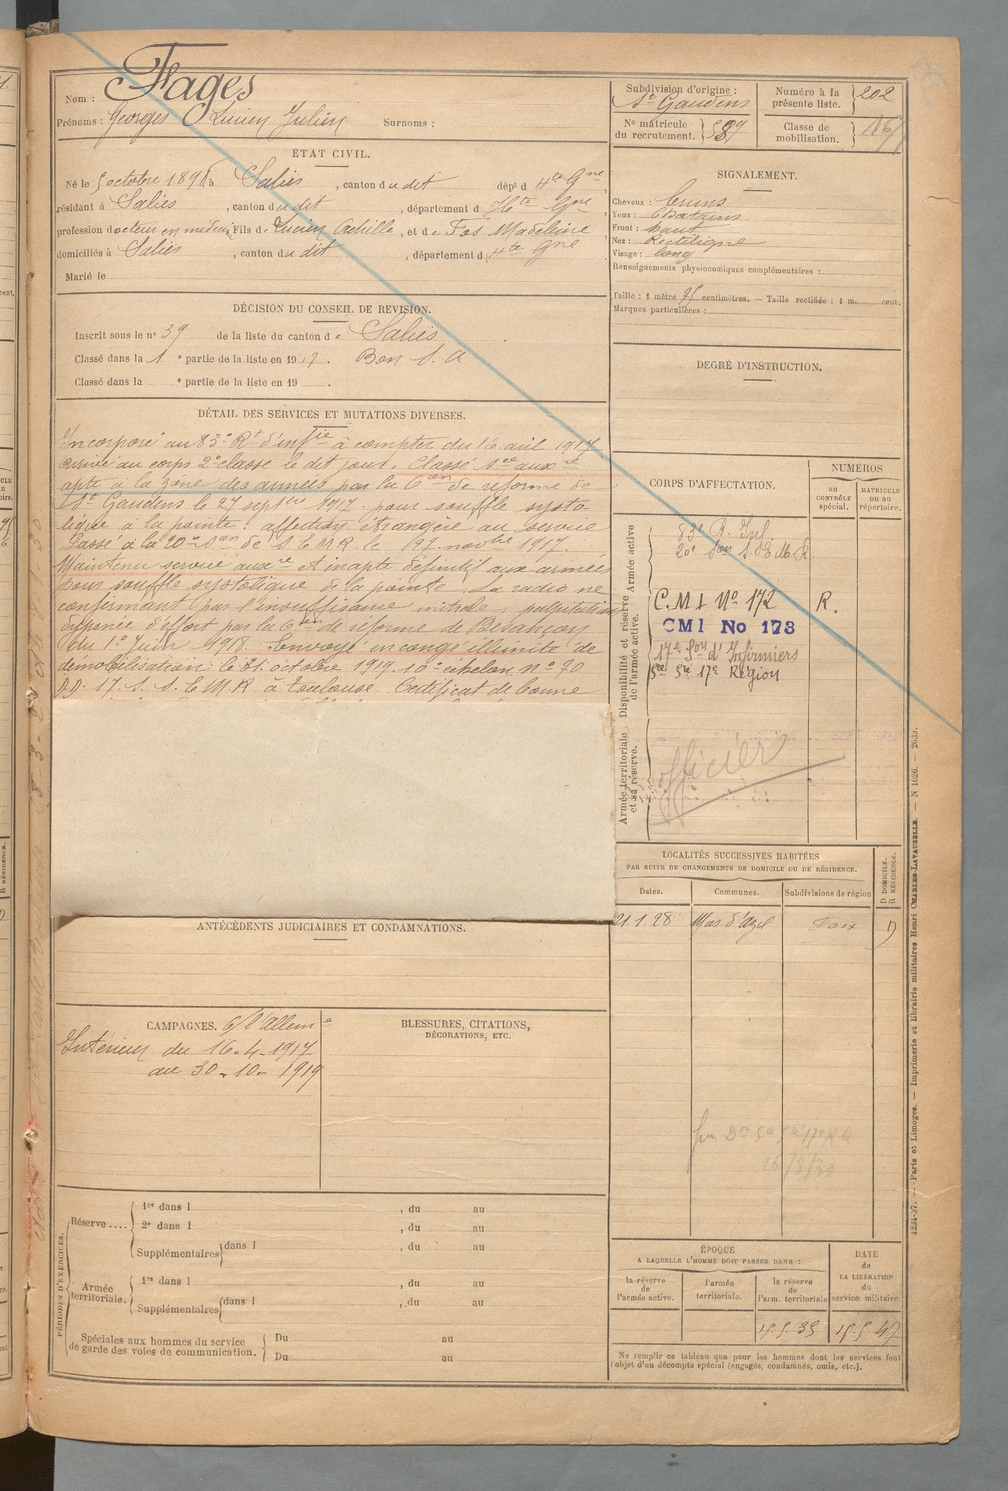 Nom : Fages
Prénoms : Georges Lucien Julien Surnoms :
ÉTAT CIVIL.
Né le 5 octobre 1898 à Salies, canton du dit dépt d Hte Gne
résidant à Salies, canton du dit, département d Hte Gne
profession docteur en médecine Fils de Lucien Achille, et de Fos Madeleine
domiciliés à Salies, canton du dit, département d Hte Gne
Marié le
DÉCISION DU CONSEIL DE REVISION.
Inscrit sous le no 39 de la liste du canton de Salies
Classé dans la 1 e partie de la liste en 1917. Bon S. A
Classé dans la e partie de la liste en 19 .
DÉTAIL DES SERVICES ET MUTATIONS DIVERSES.
Incorporé au 83e Rt d'infie à compter du 16 avil 1917
arrivé au corps 2e classe le dit jour. Classé sce auxre
apte à la zone des armées par la 6 con de réforme de
St Gaudens le 27 septbre 1917. pour souffle systo
lique à la pointe. affection étrangère au service
Passé à la 20e Son de S.E.M.R. le 27 novbre 1917.
Maintenu service auxre et inapte définitif aux armées
pour souffle systolique de la pointe. La radio ne
confirmant pas l'insuffisance mitrale, palpitations
dyspnée d'effort par la 6 con de réforme de Besançon
du 1er Juin 1918. Envoyé en congé illimité de
démobilisation le 31 octobre 1919. 10e échelon no 30
DD. 17. S. S. E. M. R à Toulouse. Certificat de bonne
ANTÉCÉDENTS JUDICIAIRES ET CONDAMNATIONS.
CAMPAGNES. C/ l'Allemne
Intérieur du 16-4-1917
au 30-10-1919
BLESSURES, CITATIONS,
DÉCORATIONS, ETC.
PÉRIODES D'EXERCICES.
Réserve ....
1re dans l , du au
2e dans l , du au
Supplémentaires dans l , du au
Armée territoriale.
1re dans l , du au
Supplémentaires dans l , du au
Spéciales aux hommes du service
de garde des voies de communication.
Du au
Du au
Subdivision d'origine :
St Gaudens
No matricule
du recrutement. 589
Numéro à la
présente liste. 202
Classe de
mobilisation. 1916
SIGNALEMENT.
Cheveux : bruns
Yeux : Chatains
Front : haut
Nez : Rectiligne
Visage : long
Renseignements physionomiques complémentaires :
Taille : 1 mètre 75 centimètres. — Taille rectifiée : 1 m. cent.
Marques particulières :
DEGRÉ D'INSTRUCTION.
CORPS D'AFFECTATION.
NUMÉROS
AU
CONTRÔLE
spécial.
MATRICULE
OU AU
répertoire.
Armée active
83e R. Inf.
20e Son S.E.M.R.
Disponibilité et réserve
de l'armée active.
C.M 1 No 172 R.
CM1 No 173
17e Son d'Infirmiers
Sce Sté 17e Région
Armée territoriale
et sa réserve.
officier
LOCALITÉS SUCCESSIVES HABITÉES
PAR SUITE DE CHANGEMENTS DE DOMICILE OU DE RÉSIDENCE.
Dates.
Communes.
Subdivisions de région
D DOMICILE.
R RÉSIDENCE.
21.1.28 Mas d'azil Foix D
26/8/30
ÉPOQUE
A LAQUELLE L'HOMME DOIT PASSER DANS :
la réserve
de
l'armée active.
l'armée
territoriale.
la réserve
de
l'arm. territoriale
DATE
de
LA LIBÉRATION
du
service militaire.
15-5-35 15-5-47
Ne remplir ce tableau que pour les hommes dont les services font
l'objet d'un décompte spécial (engagés, condamnés, omis, etc.).
4234-37. — Paris et Limoges. — Imprimerie et librairie militaires Henri CHARLES-LAVAUZELLE. — N 1026. — 2633.